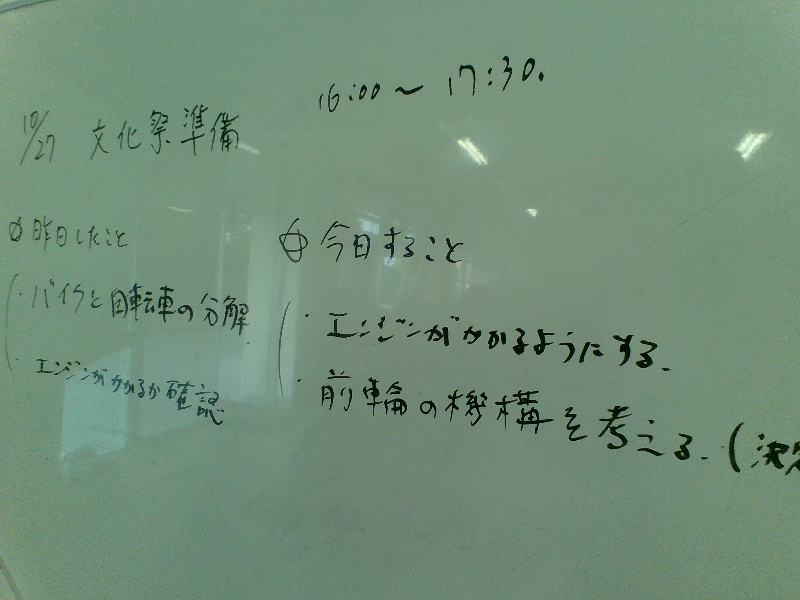 16:00〜17:30.
10/27 文化祭準備
昨日したこと
・バイクと自転車の分解
・エンジンがかかるか確認
今日すること
・エンジンがかかるようにする.
・前輪の機構を考える.(決定